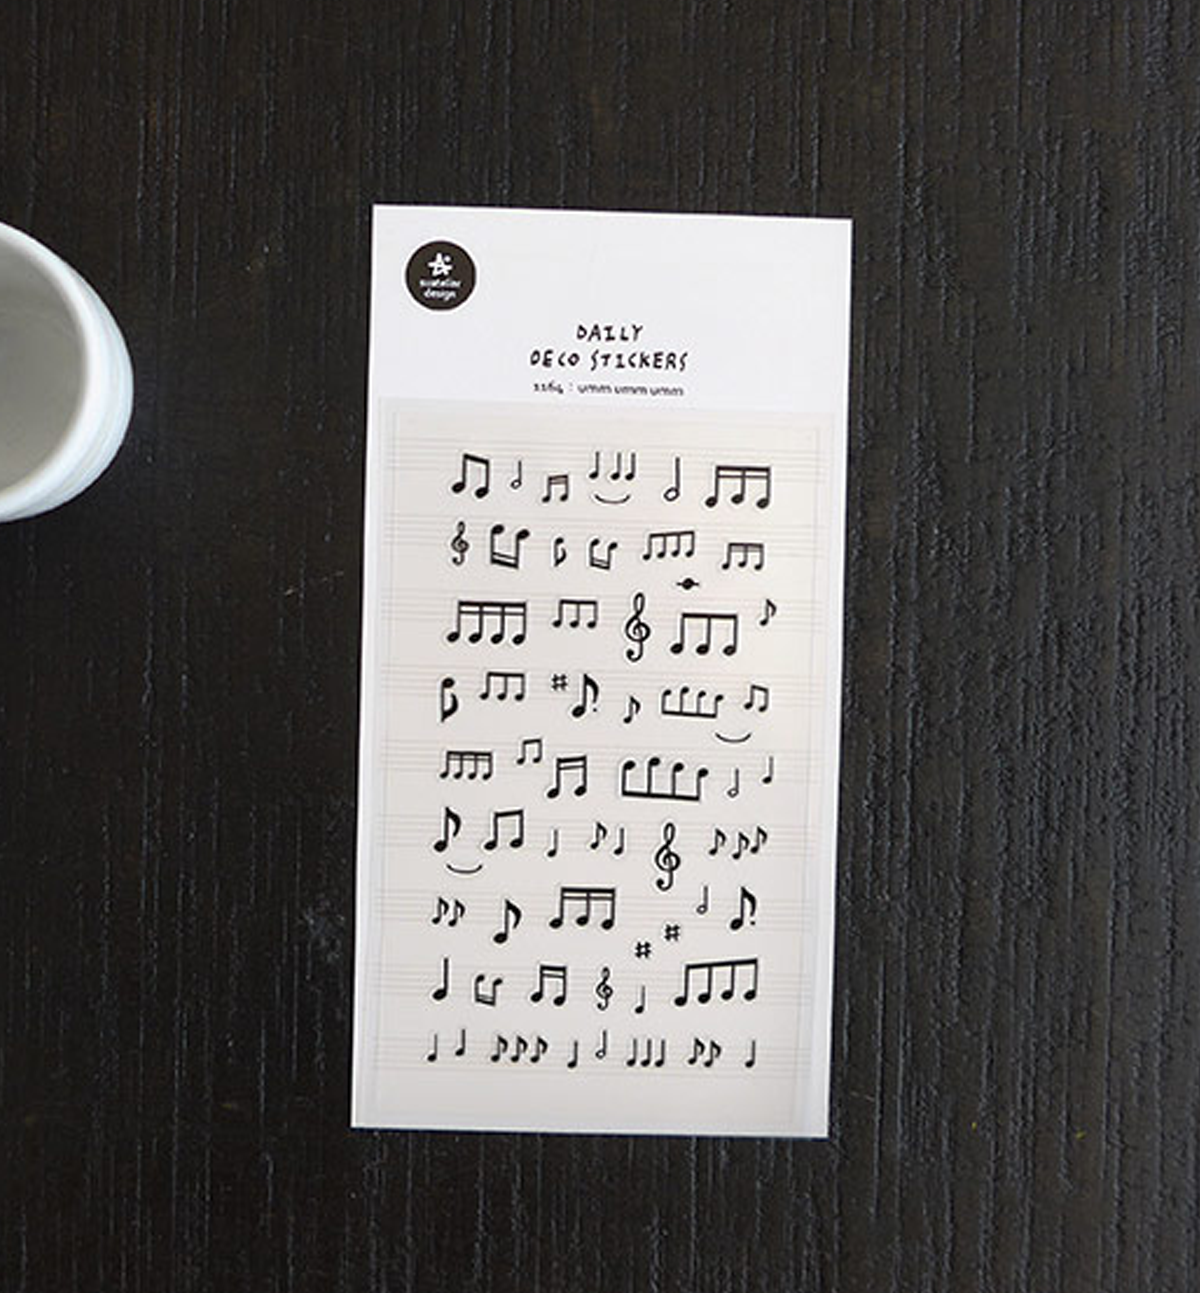 suatelier
design
DAILY
DECO STICKERS
1164 : umm umm umm